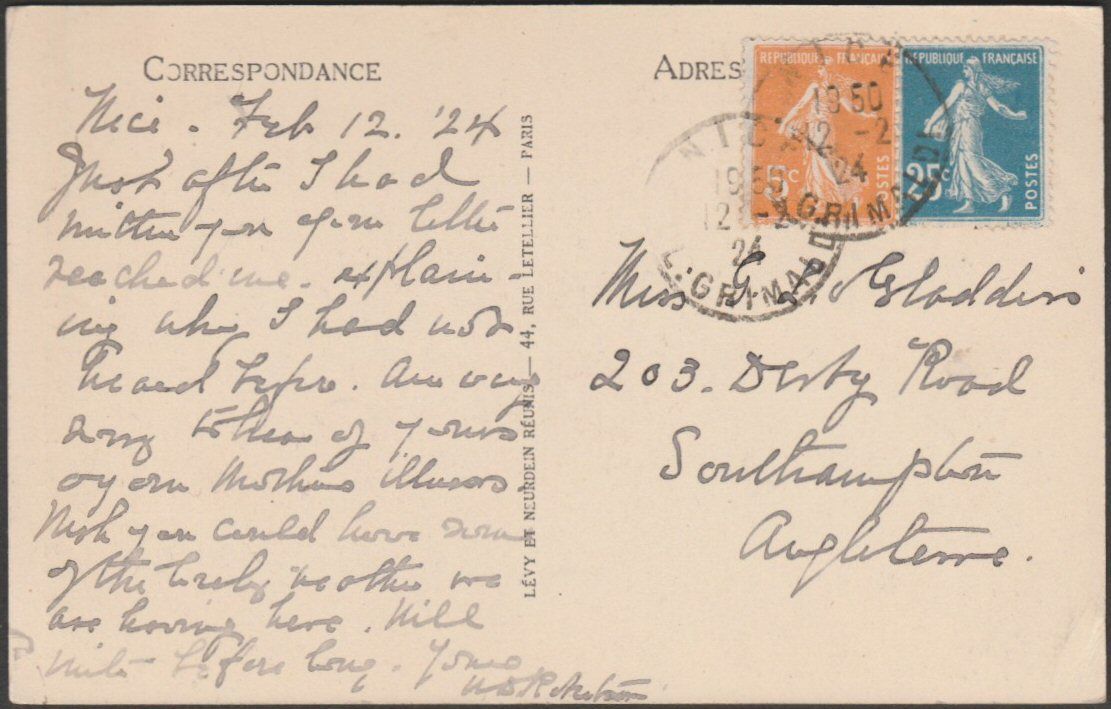 CORRESPONDANCE
Nice. Feb 12. '24
Just after I had
written you your letter
reached me. explain-
ing why I had not
heard before. Am very
sorry to hear of yours
& your Mothers illness.
Wish you could have some
of the lovely weather we
are having here. Will
write before long. Yours
LÉVY ET NEURDEIN RÉUNIS — 44, RUE LETELLIER — PARIS
ADRES
REPUBLIQUE FRANÇAISE
5c
POSTES
REPUBLIQUE FRANÇAISE
25c
POSTES
NICE
19 50
12 -2
24
GRIMALDI
NICE
19 50
12 -2
24
GRIMALDI
Miss G. Gladdis
203. Derby Road
Southampton
Angleterre.